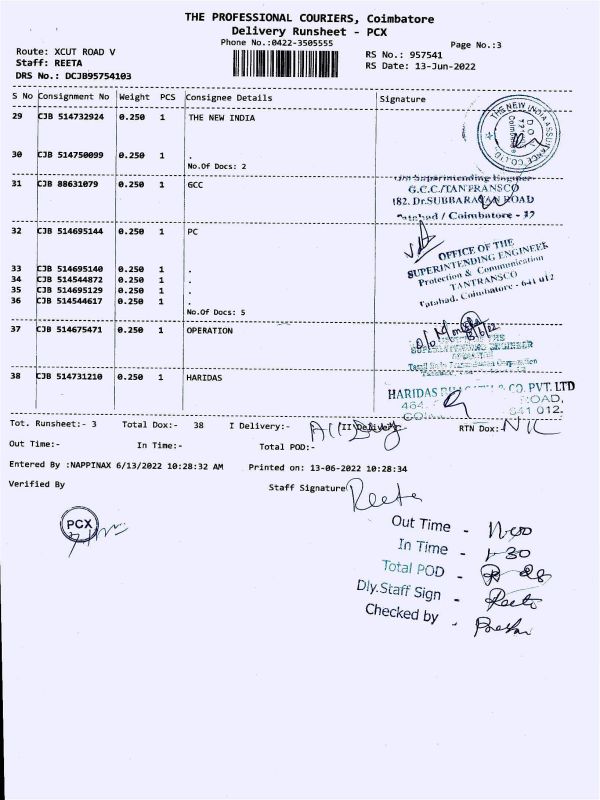 THE PROFESSIONAL COURIERS, Coimbatore
Delivery Runsheet - PCX
Phone No.:0422-3505555
Page No.:3
Route: XCUT ROAD V
RS No.: 957541
Staff: REETA
RS Date: 13-Jun-2022
DRS No.: DCJB95754103
S No Consignment No Weight PCS Consignee Details Signature
29 CJB 514732924 0.250 1 THE NEW INDIA
THE NEW INDIA ASSURANCE CO. LTD.
30 CJB 514750099 0.250 1 .
No.Of Docs: 2
31 CJB 88631079 0.250 1 GCC
Superintending Engineer
G.C.C./TANTRANSCO
182, Dr.SUBBARAYAN ROAD
Tatabad / Coimbatore - 12
32 CJB 514695144 0.250 1 PC
OFFICE OF THE
SUPERINTENDING ENGINEER
Protection & Communication
TANTRANSCO
Tatabad, Coimbatore - 641 012
33 CJB 514695140 0.250 1 .
34 CJB 514544872 0.250 1 .
35 CJB 514695129 0.250 1 .
36 CJB 514544617 0.250 1 .
No.Of Docs: 5
37 CJB 514675471 0.250 1 OPERATION
SUPERINTENDING ENGINEER
38 CJB 514731210 0.250 1 HARIDAS
HARIDAS & CO. PVT. LTD
ROAD,
641 012.
Tot. Runsheet:- 3 Total Dox:- 38 I Delivery:- II Delivery RTN Dox:- NIL
Out Time:- In Time:- Total POD:-
Entered By :NAPPINAX 6/13/2022 10:28:32 AM Printed on: 13-06-2022 10:28:34
Verified By
Staff Signature Reeta
PCX
Out Time -
In Time - 1-30
Total POD - 28
Dly.Staff Sign - Reeta
Checked by -